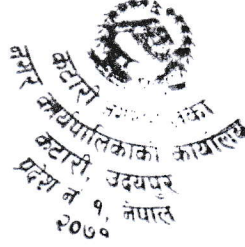 कटारी नगरपालिका
नगर कार्यपालिकाको कार्यालय
कटारी, उदयपुर
प्रदेश नं १, नेपाल
२०७१